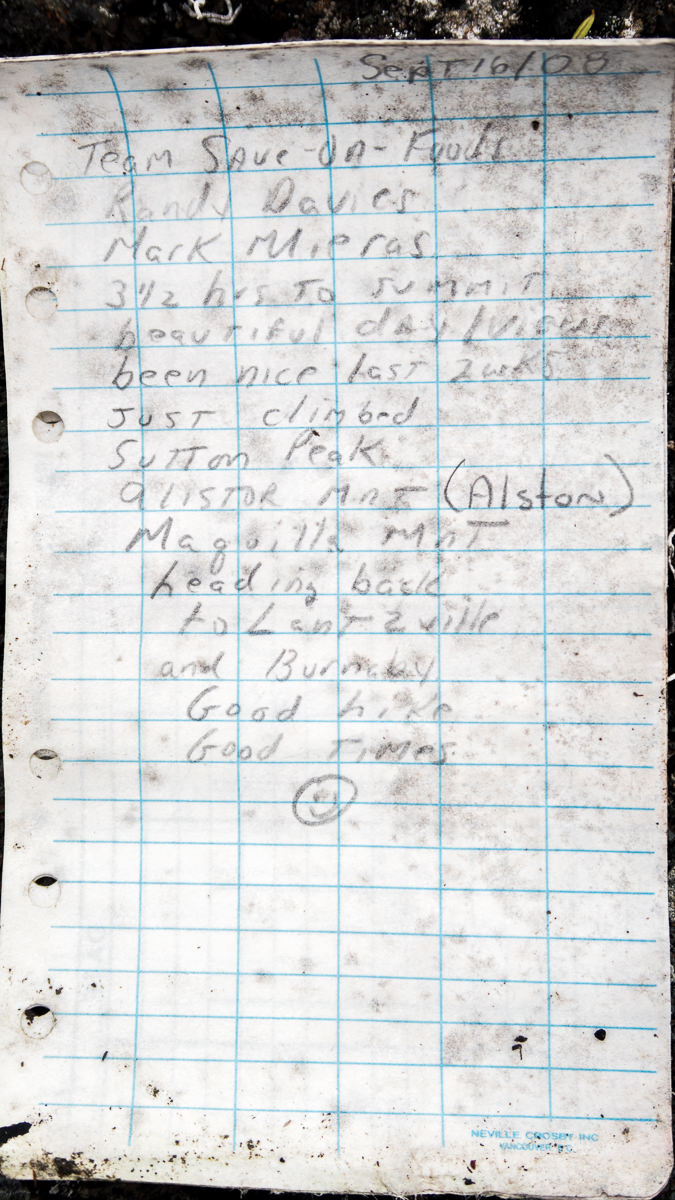 Sept 16/08
Team Save-On-Foods
Randy Davies
Mark Mieras
3 1/2 hrs To summit
beautiful day/views
been nice last 2 wks
Just climbed
Sutton Peak
alistor mnt (Alston)
Maquilla Mnt
heading back
to Lantzville
and Burnaby
Good hike
Good Times
NEVILLE CROSBY INC
VANCOUVER B.C.